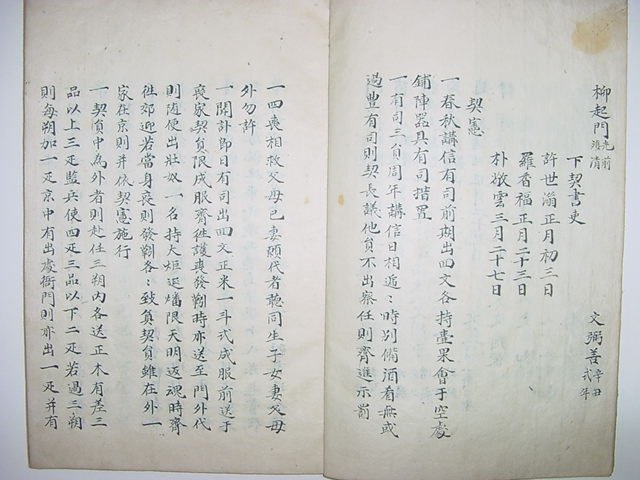 柳起門 光前 清
文弼善 辛丑 式年
下契書吏
許世瀚 正月初三日
羅香福 正月二十三日
朴雲 三月二十七日
契憲
一春秋講信有司前期出回文各持壺果會于空處
鋪陣器具有司措置
一有司三員周年講信日相遞遞時別備酒肴無或
過豊有司則契長議他員不出察任則齊進示罰
一四喪相救父母已妻願代者聽同生子女妻父母
外勿許
一聞訃卽日有司出回文正米一斗式成服前送于
喪家契員限成服齊徃護喪發靷時亦送至門外代
則隨便出壯奴一名持大炬返燔限天明返魂時齊
徃郊迎若當身喪則發靷各各致奠契員雖在外一
家在京則并依契憲施行
一契員中爲外者則赴任三朔內各送正木有差三
品以上三疋監兵使四疋三品以下二疋若過三朔
則每朔加一疋京中有出處衙門則亦出一疋并有